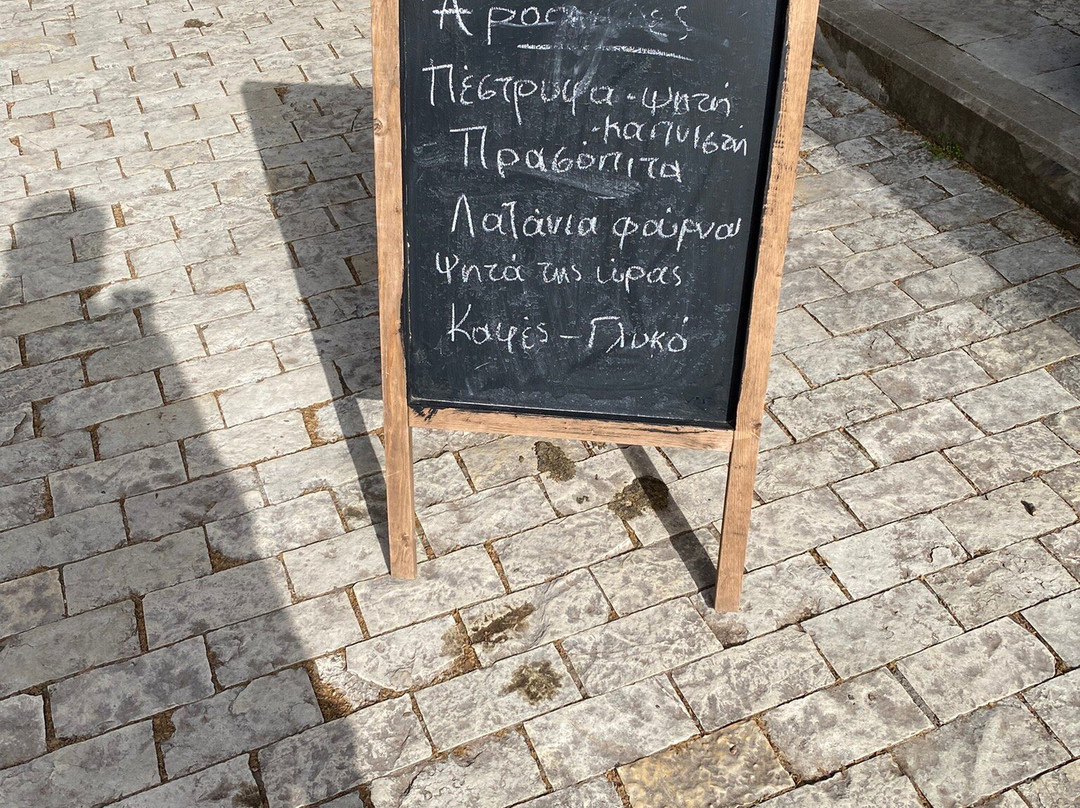 Πέστρυφα - ψητή
- καπνιστή
Πρασόπιτα
Λαζάνια φούρνου
Ψητά της ώρας
Καφές - Γλυκό